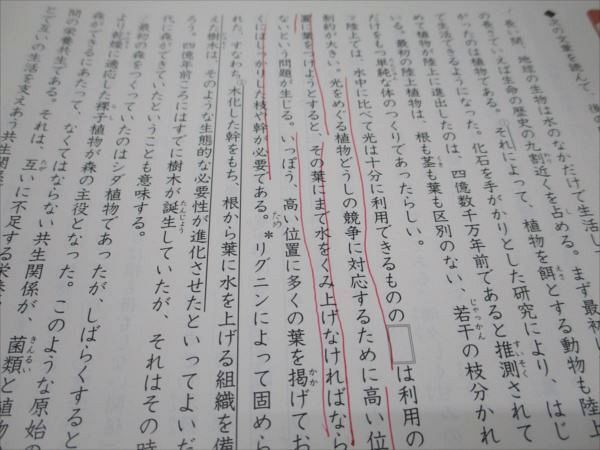 ◆次の文章を読んで、後の
長い間、地球の生物は水のなかだけで生活し
の長さでいえば生命の歴史の九割近くを占める。まず最初
かったのは植物である。それによって、植物を餌とする動物も陸上
で生活できるようになった。化石を手がかりとした研究により、はじ
めて植物が陸上に進出したのは、四億数千万年前であると推測されて
いる。最初の陸上植物は、根も茎も葉も区別のない、若干の枝分かれ
だけをもつ単純な体のつくりであったらしい。
陸上では、水中に比べて光は十分に利用できるものの□は利用の
制約が大きい。光をめぐる植物どうしの競争に対応するために高い位
置に葉をつけようとすると、その葉にまで水をくみ上げなければなら
ないという問題が生じる。いっぽう、高い位置に多くの葉を掲げてお
くにはしっかりした枝や幹が必要である。*リグニンによって固めら
れた、すなわち木化した幹をもち、根から葉に水を上げる組織を備
えた樹木は、そのような生態的な必要性が進化させたといってよいだ
ろう。四億年前ごろにはすでに樹木が誕生していたが、それはその時
代に森ができていたということも意味する。
最初の森をつくっていたのはシダ植物であったが、しばらくすると
より乾燥に適応した裸子植物が森の主役となった。このような原始の
森ができるにあたって、なくてはならない共生関係が、菌類と植物
間の栄養共生である。それは、互いに不足する栄養
とで互いの生活を支えあう共生関係